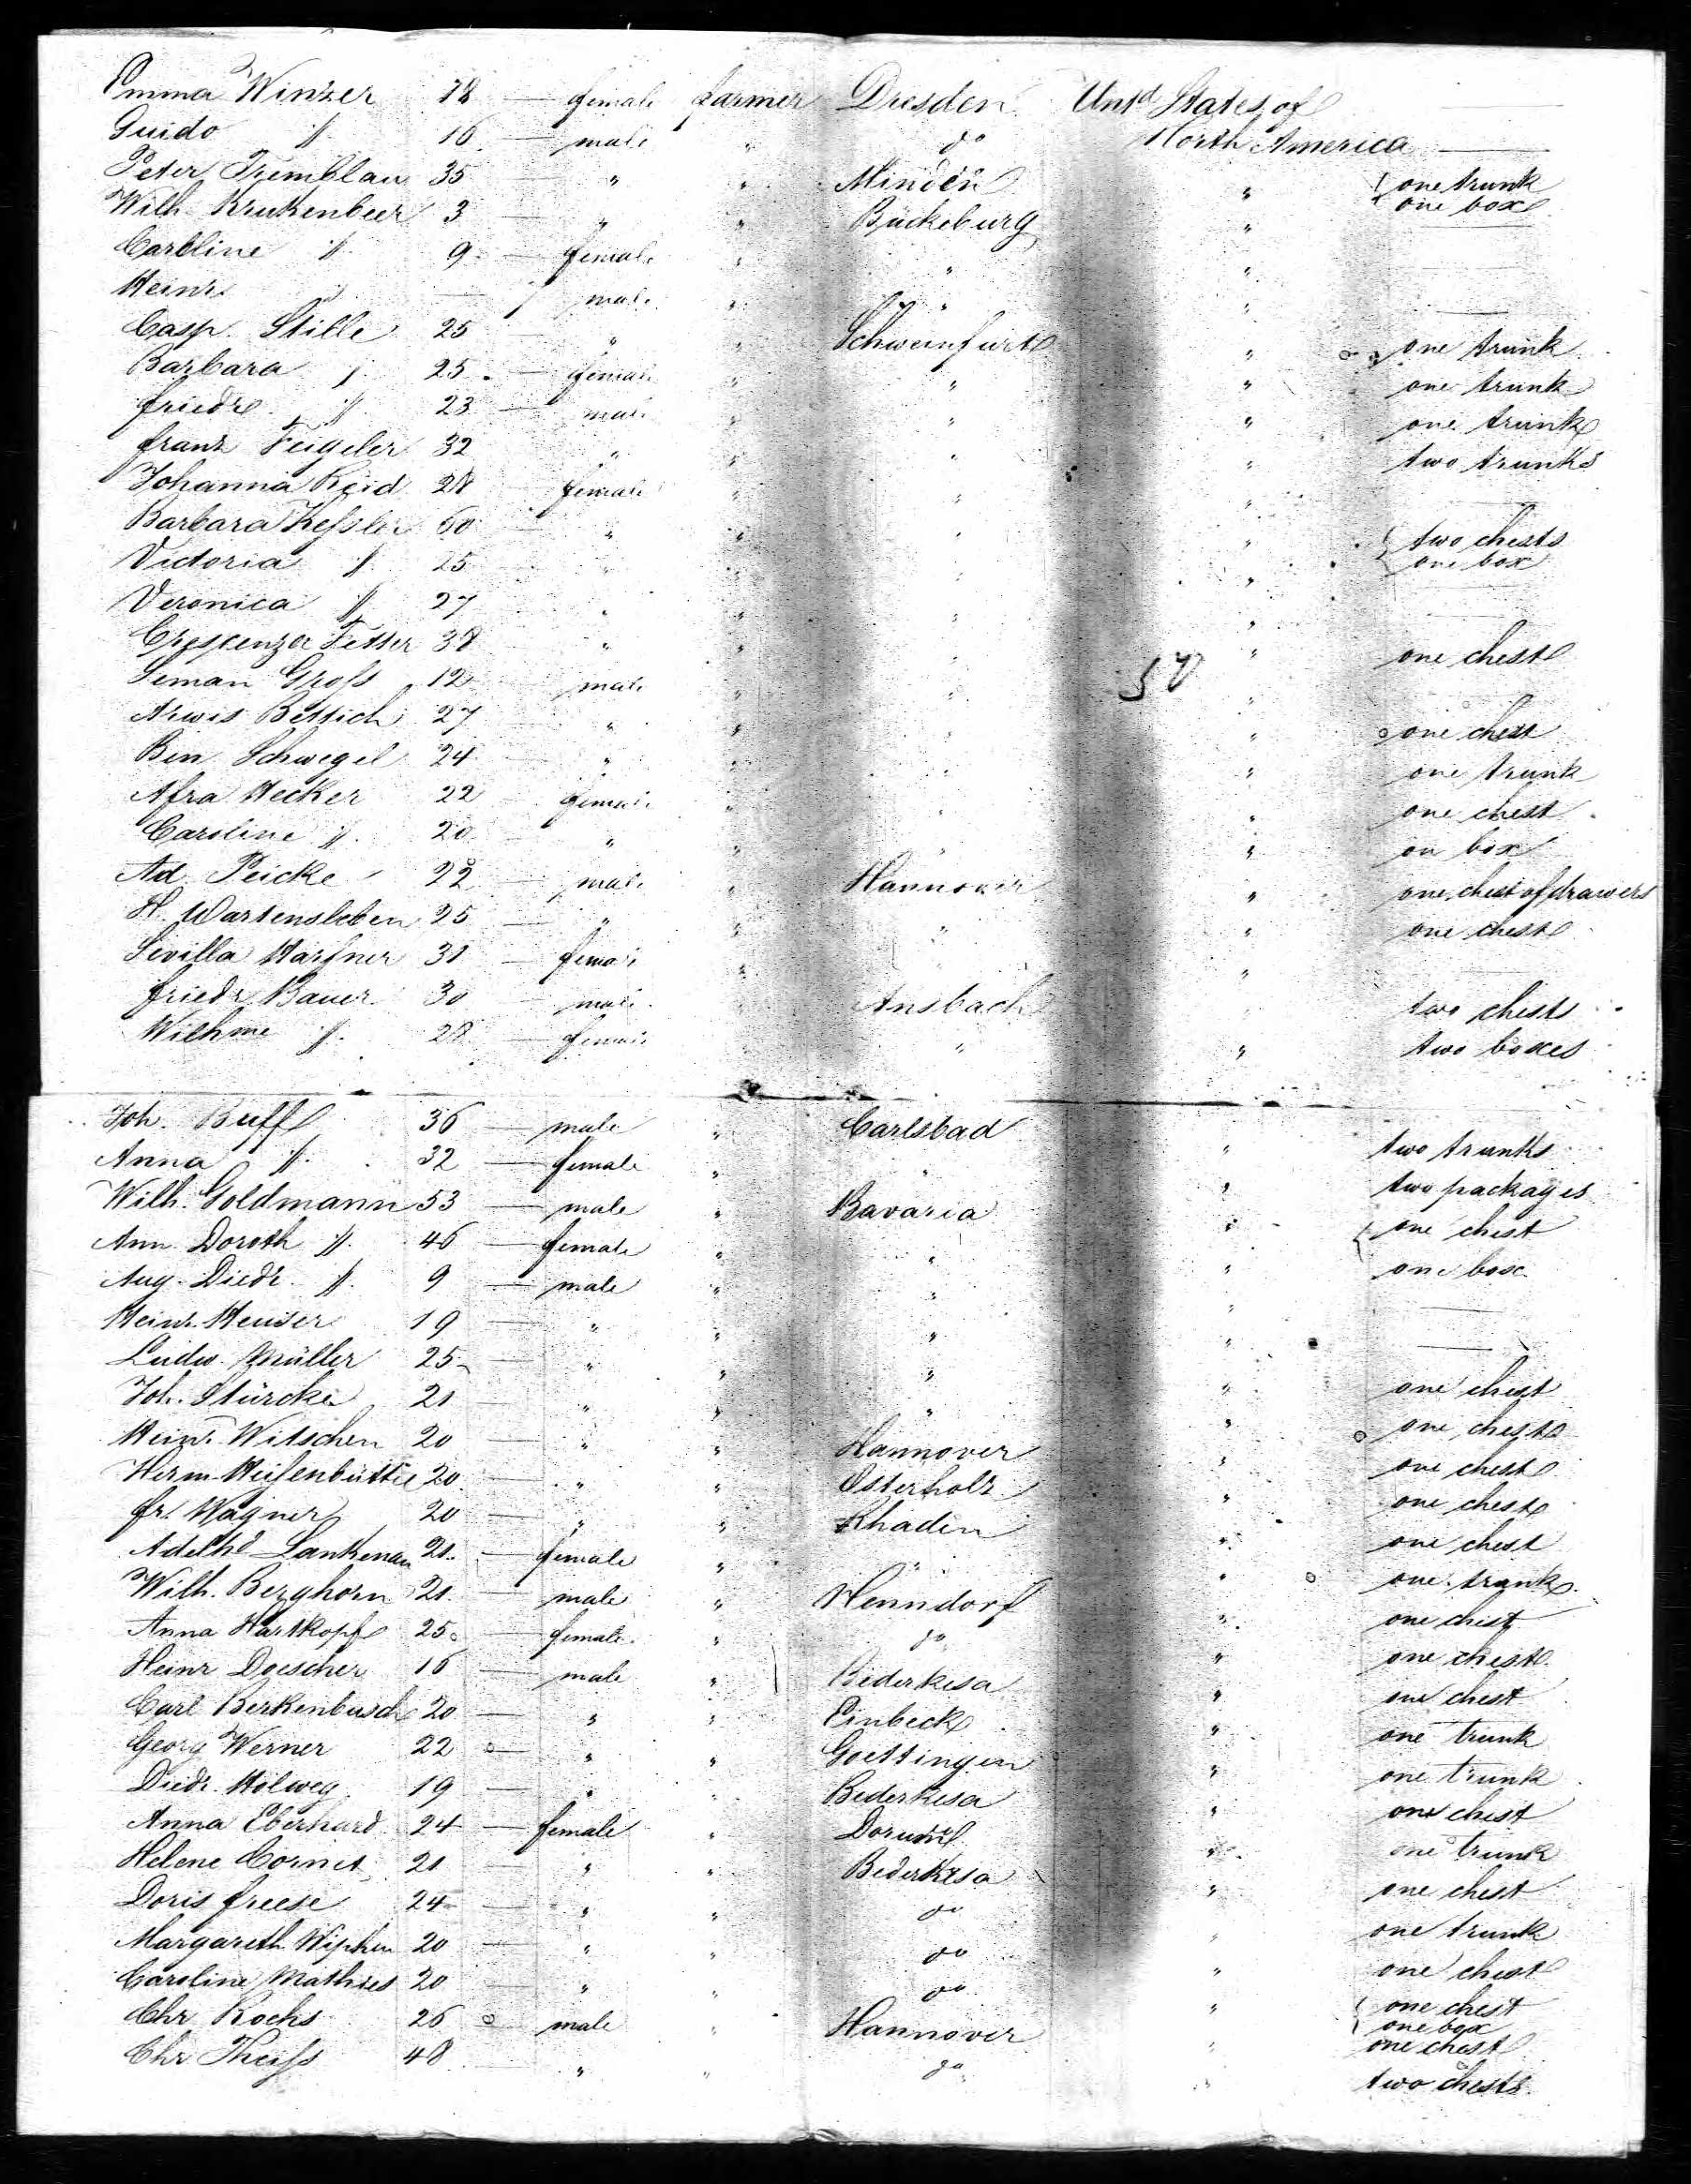 Emma Winzer 18 — female farmer Dresden Untd States of —
Guido " 16 — male " do North America —
Peter Tremblau 35 — " " Minden " { one trunk
one box
Wilh. Krukenbeer 3 — " " Bückeburg " —
Caroline " 9 — female " " " —
Heinr. " — male " " " —
Casp. Stille 25 " " Schweinfurt " one trunk
Barbara " 25 — female " " " one trunk
Friedr. " 23 — male " " " one trunk
Franz Feigeler 32 " " " " two trunks
Johanna Reid 28 female " " " —
Barbara Keßler 60 " " " " { two chests
one box
Victoria " 25 " " " "
Veronica " 27 " " " " —
Crescenza Fetter 38 " " " " one chest
Seman Groß 12 male " " " —
50
Bettich 27 " " " " one chest
Ben Schwegel 24 " " " " one trunk
Afra Hecker 22 female " " " one chest
Caroline " 20 " " " " on box
Ad. Peicke 22 — male " Hannover " one chest of drawers
H. Wartensleben 25 — " " " " one chest
Sevilla 31 — female " " " —
Friedr. Bauer 30 — male Ansbach " two chests
Wilhme " 28 — female " " two boxes
Joh. Buff 36 — male " Carlsbad " two trunks
Anna " 32 — female " " " two packages
Wilh. Goldmann 53 — male " Bavaria " { one chest
Ann Doroth " 46 — female " " " one box
Aug. Diedr. " 9 — male " " " —
Heinr. Heuser 19 — " " " " —
Ludw. Müller 25 — " " " " one chest
Joh. Stürcke 21 — " " " " one chest
Heinr. Witschen 20 — " " Hannover " one chest
Herm. Heißenbüttel 20 — " " Osterholz " one chest
Fr. Wagner 20 — " " Rhaden " one chest
Adelhd Lankenau 21 — female " " " one trunk
Wilh. Berghorn 21 — male " Henndorf " one chest
Anna Hartkopf 25 — female " do " one chest
Heinr Doescher 16 — male " Bederkesa " one chest
Carl Berkenbusch 20 — " " Einbeck " one trunk
Georg Werner 22 — " " Goettingen " one trunk
Diedr. Holweg 19 — " " Bederkesa " one chest
Anna Eberhard 24 — female " Dorum " one trunk
Helene Cornet 21 — " " Bederkesa " one chest
Doris Freese 24 — " " do " one trunk
Margareth 20 — " " do " one chest
Caroline Mathies 20 — " " do " { one chest
one box
Chr Rochs 26 — male " Hannover " one chest
Chr Theiß 48 " " do " two chests